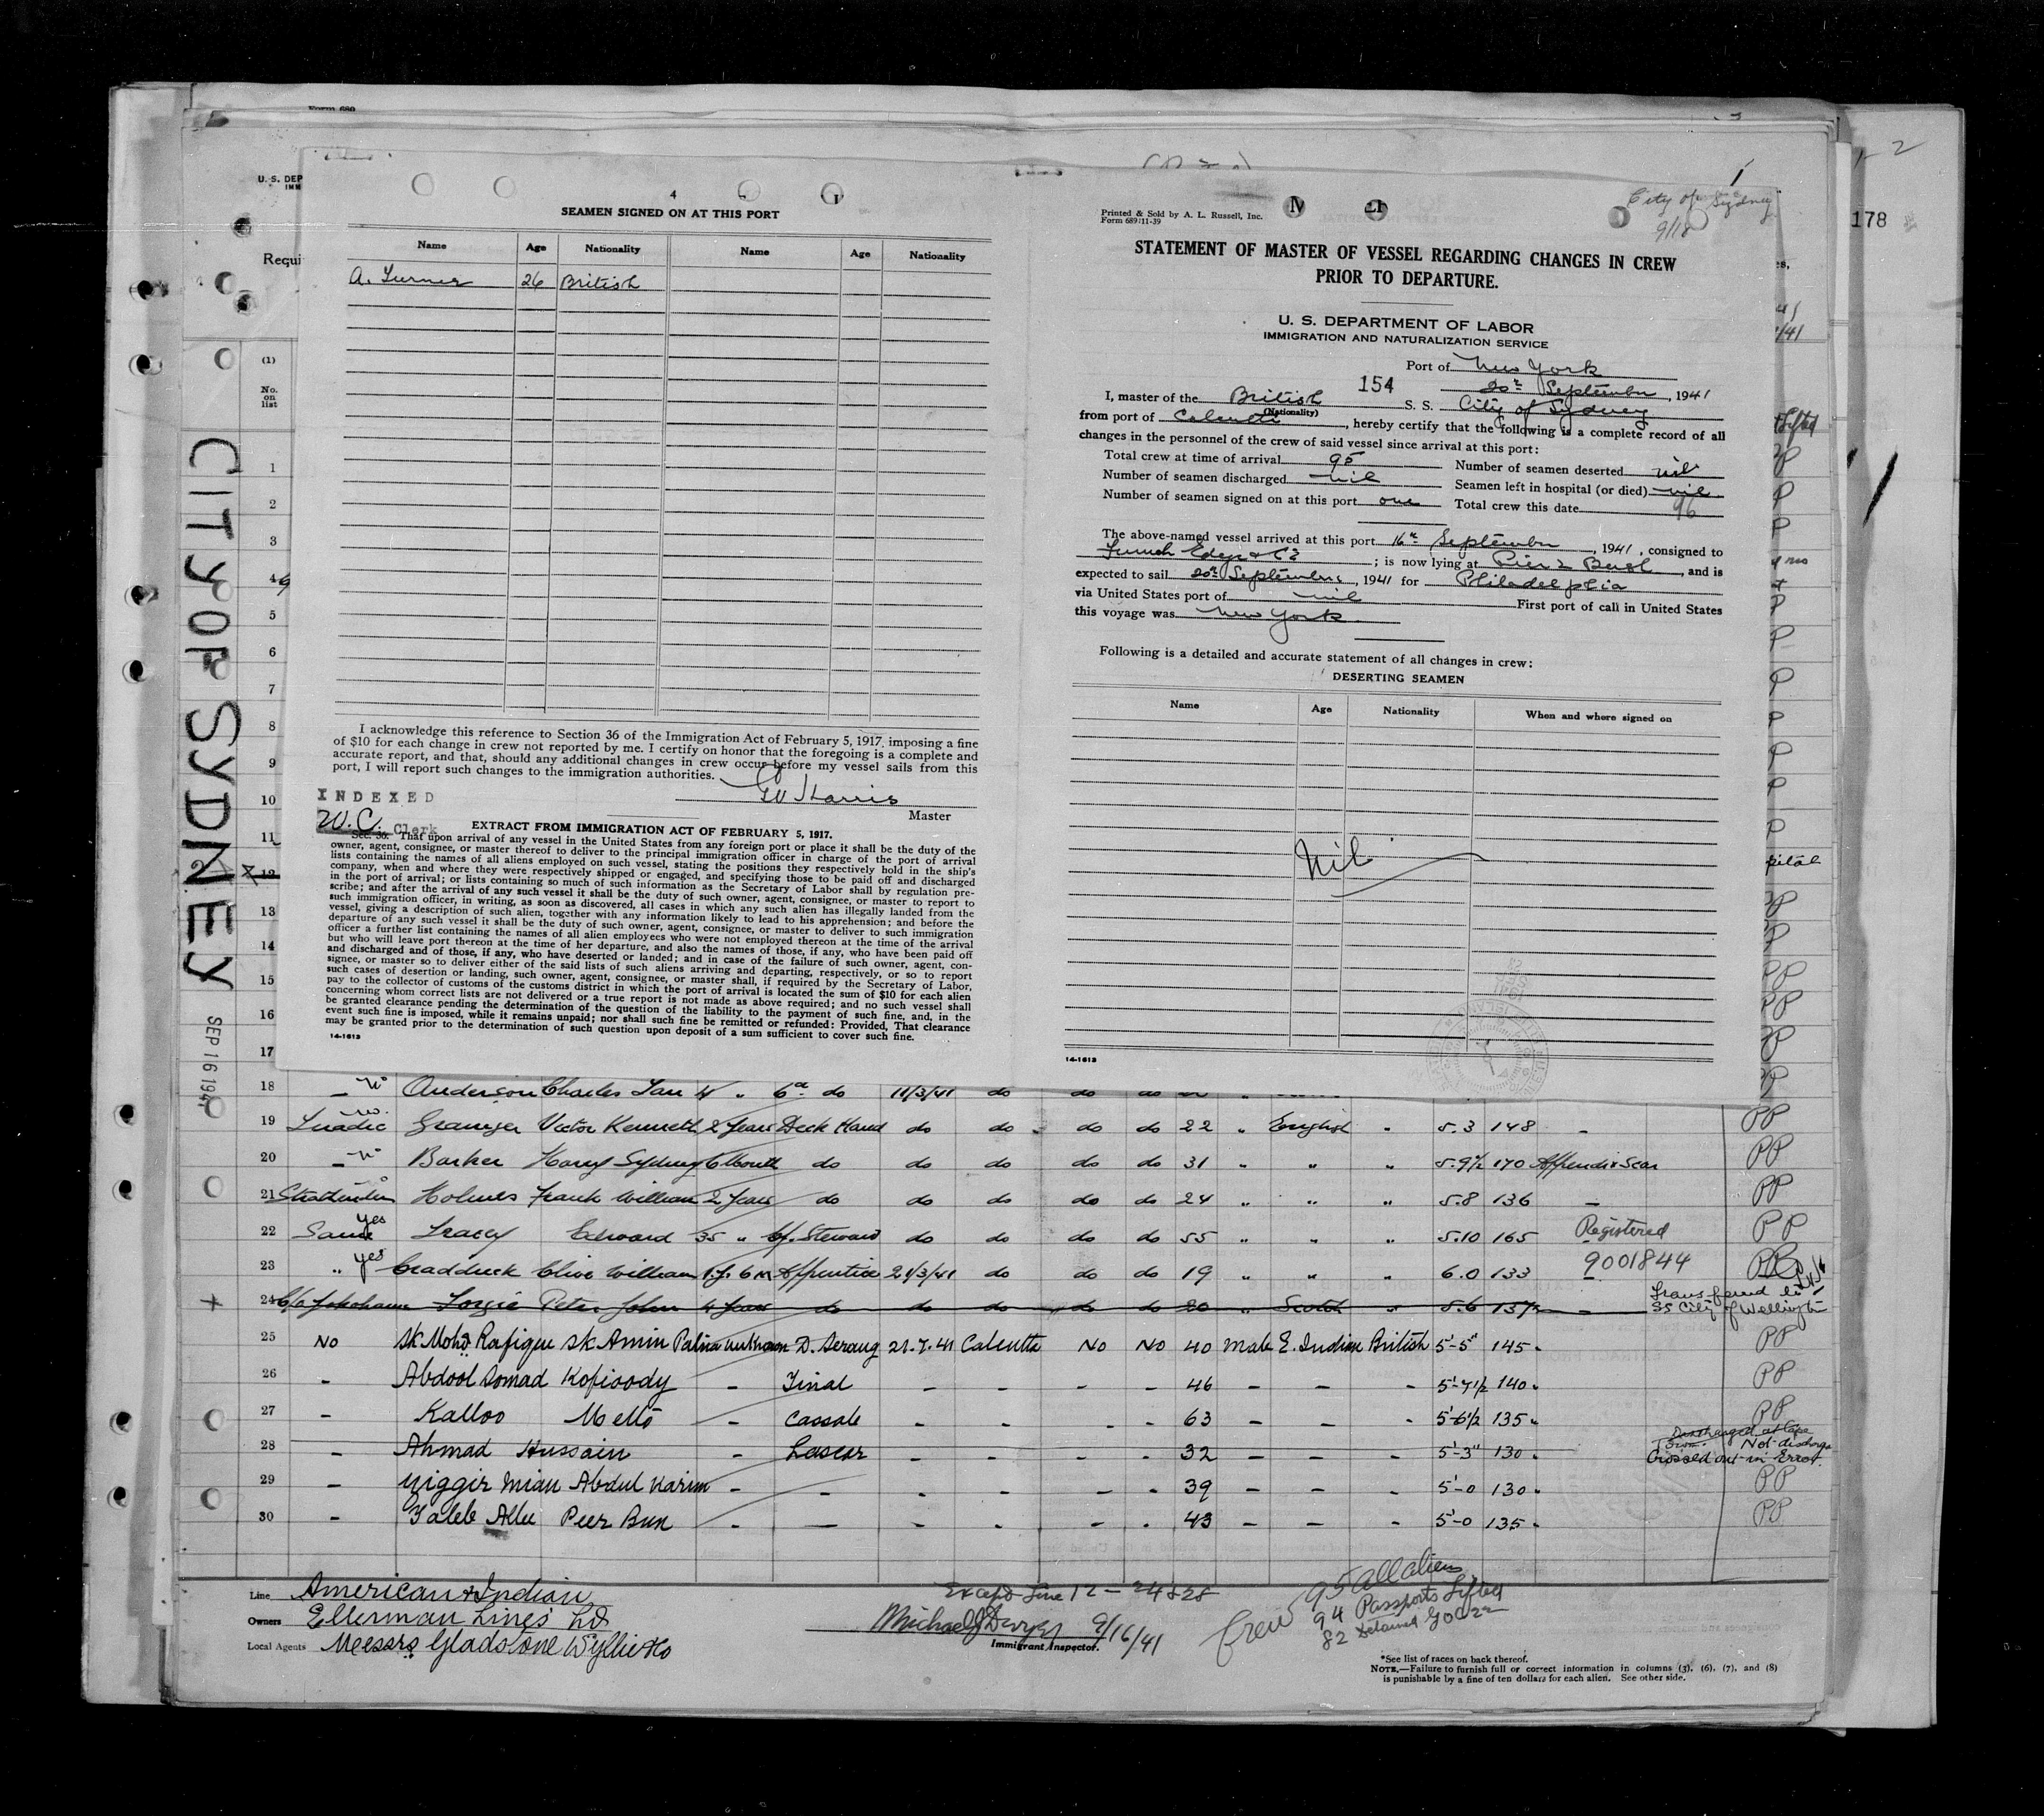 Form 689
U. S. DEP
IMM
Requi
(1)
No.
on
list
CITY OF SYDNEY
SEP 16 1941
178
2
4
SEAMEN SIGNED ON AT THIS PORT
Name Age Nationality Name Age Nationality
A. Turner 26 British
I acknowledge this reference to Section 36 of the Immigration Act of February 5, 1917, imposing a fine
of $10 for each change in crew not reported by me. I certify on honor that the foregoing is a complete and
accurate report, and that, should any additional changes in crew occur before my vessel sails from this
port, I will report such changes to the immigration authorities.
Harris
INDEXED
Master
W.C. Clerk
EXTRACT FROM IMMIGRATION ACT OF FEBRUARY 5, 1917.
Sec. 36. That upon arrival of any vessel in the United States from any foreign port or place it shall be the duty of the
owner, agent, consignee, or master thereof to deliver to the principal immigration officer in charge of the port of arrival
lists containing the names of all aliens employed on such vessel, stating the positions they respectively hold in the ship's
company, when and where they were respectively shipped or engaged, and specifying those to be paid off and discharged
in the port of arrival; or lists containing so much of such information as the Secretary of Labor shall by regulation pre-
scribe; and after the arrival of any such vessel it shall be the duty of such owner, agent, consignee, or master to report to
such immigration officer, in writing, as soon as discovered, all cases in which any such alien has illegally landed from the
vessel, giving a description of such alien, together with any information likely to lead to his apprehension; and before the
departure of any such vessel it shall be the duty of such owner, agent, consignee, or master to deliver to such immigration
officer a further list containing the names of all alien employees who were not employed thereon at the time of the arrival
but who will leave port thereon at the time of her departure, and also the names of those, if any, who have been paid off
and discharged and of those, if any, who have deserted or landed; and in case of the failure of such owner, agent, con-
signee, or master so to deliver either of the said lists of such aliens arriving and departing, respectively, or so to report
such cases of desertion or landing, such owner, agent, consignee, or master shall, if required by the Secretary of Labor,
pay to the collector of customs of the customs district in which the port of arrival is located the sum of $10 for each alien
concerning whom correct lists are not delivered or a true report is not made as above required; and no such vessel shall
be granted clearance pending the determination of the question of the liability to the payment of such fine, and, in the
event such fine is imposed, while it remains unpaid; nor shall such fine be remitted or refunded: Provided, That clearance
may be granted prior to the determination of such question upon deposit of a sum sufficient to cover such fine.
14-1613
City of Sydney
9/18
Printed & Sold by A. L. Russell, Inc.
Form 689 11-39
STATEMENT OF MASTER OF VESSEL REGARDING CHANGES IN CREW
PRIOR TO DEPARTURE.
U. S. DEPARTMENT OF LABOR
IMMIGRATION AND NATURALIZATION SERVICE
Port of New York
154 20th September, 1941
I, master of the British S. S. City of Sydney
(Nationality)
from port of Calcutta, hereby certify that the following is a complete record of all
changes in the personnel of the crew of said vessel since arrival at this port:
Total crew at time of arrival 95 Number of seamen deserted nil
Number of seamen discharged nil Seamen left in hospital (or died) nil
Number of seamen signed on at this port one Total crew this date 96
The above-named vessel arrived at this port 16th September, 1941, consigned to
Funch Edye & Co; is now lying at Pier 2 Bush, and is
expected to sail 20th September, 1941 for Philadelphia
via United States port of nil First port of call in United States
this voyage was New York
Following is a detailed and accurate statement of all changes in crew:
DESERTING SEAMEN
Name Age Nationality When and where signed on
Nil
14-1613
18 Anderson Charles Ian 4 " 6th do 11/3/41 do do do
19 Granger Victor Kenneth 2 Years Deck Hand do do do do 22 " English " 5.3 148 - PP
20 Barker Harry Sydney 6 Month do do do do do 31 " " " 5.9½ 170 Appendix Scar PP
21 Holmes Frank William 2 Years do do do do do 24 " " " 5.8 136 - PP
22 Same yes Tracey Edward 35 " Cf. Steward do do do do 55 " " " 5.10 165 Registered PP
23 " yes Craddock Clive William 1 y 6 M Apprentice 21/3/41 do do do 19 " " " 6.0 133 9001844
24 Peter John 4 Years do do do do do 20 " Scotch " 5.6 137½ - Transferred to
SS City of Wellington
25 No Sk Mohd Rafique Sk Amin Patna unknown D. Serang 21.7.41 Calcutta No No 40 Male E. Indian British 5'-5" 145 PP
26 - Abdool Somad Kofiooddy - Tindal - - - - 46 - - - 5'-7½ 140 PP
27 - Kalloo - Cassab - - - - 63 - - - 5'-6½ 135 PP
28 - Ahmad Hussain - Lascar - - - - 32 - - - 5'-3" 130 Discharged at Cape
Town. Not discharge
Crossed out in Error.
29 - Niggir Mian Abdul Karim - - - - - - 39 - - - 5'-0 130 PP
30 - Taleb Allee Peer Bux - - - - - - 43 - - - 5'-0 135 PP
Line American & Indian
Owners Ellerman Lines Ld.
Local Agents Messrs Gladstone Wyllie & Co
Except Line 12 - 24 & 28
Michael J Dwyer 9/16/41
Immigrant Inspector.
Crew 95 all aliens
94 Passports Lifted
82 Detained
*See list of races on back thereof.
NOTE.—Failure to furnish full or correct information in columns (3), (6), (7), and (8)
is punishable by a fine of ten dollars for each alien. See other side.